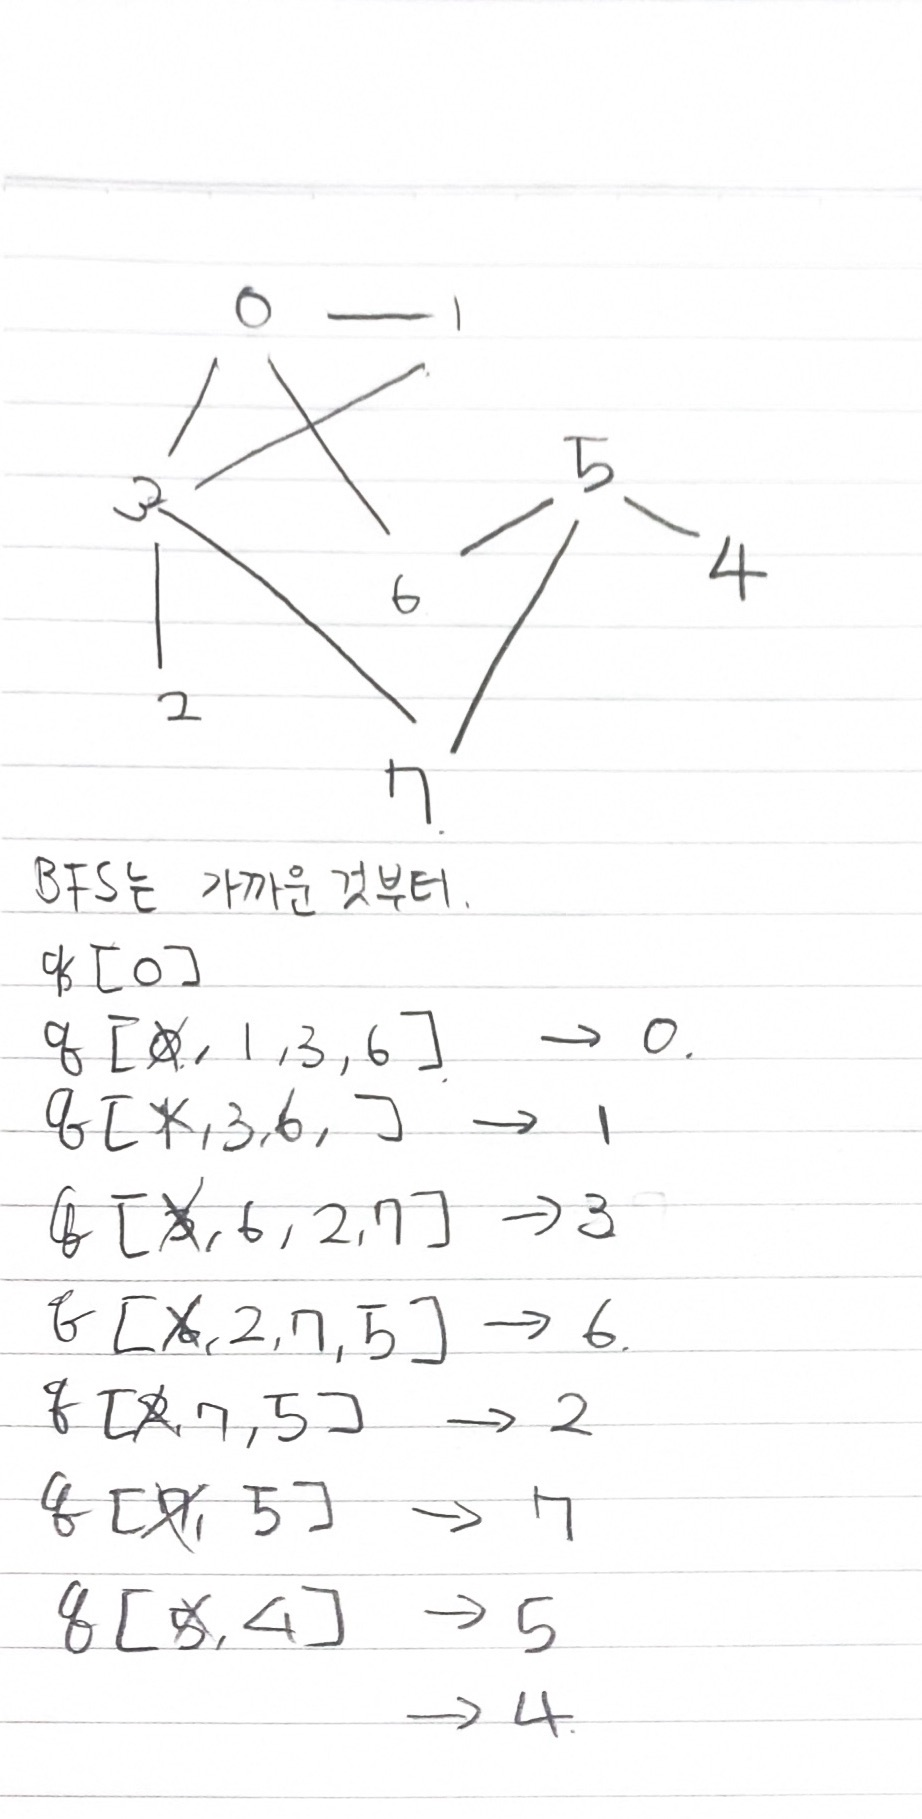 0 1
5
3
4
6
2
7
BFS는 가까운 것부터.
q[0]
q[0, 1, 3, 6] → 0.
q[1, 3, 6, ] → 1
q[3, 6, 2, 7] → 3
q[6, 2, 7, 5] → 6.
q[2, 7, 5] → 2
q[7, 5] → 7
q[5, 4] → 5
→ 4.